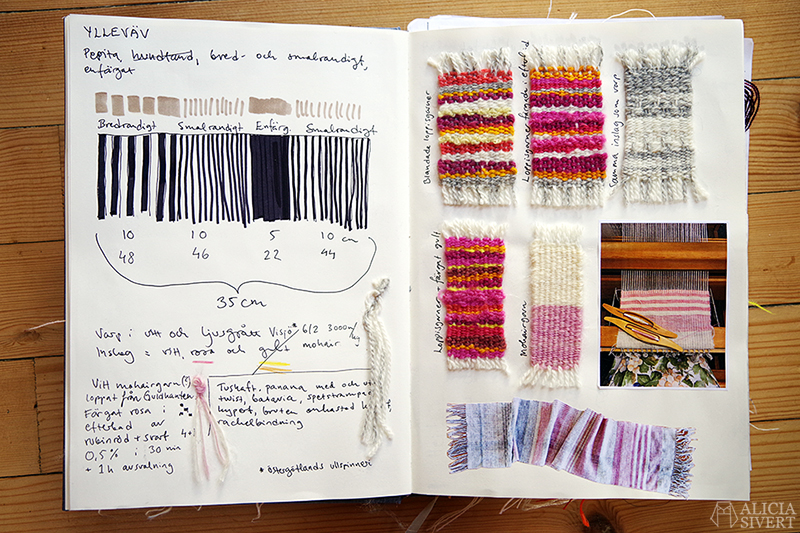 YLLEVÄV
Pepita, hundtand, bred- och smalrandigt,
enfärgat
Bredrandigt Smalrandigt Enfärg. Smalrandigt
10 10 5 10 cm
48 46 22 44
35 cm
Varp i vitt och ljusgrått Visjö* 6/2 3000m/kg
Inslag = vitt, rosa och gult mohair
Vitt mohairgarn (?)
loppat från Gudhanten
Färgat rosa i
efterbad av
rubinröd + svart 4:1
0,5 % i 30 min
+ 1h avsvalning
Tuskaft, panama med och
twist, batavia, spetstrampad
kypert, bruten omkastad
rackelbindning
* östergötlands ullspinneri
Blandade loppisgarner
Loppisgarner färgade i efterbad
Samma inslag som varp
Loppisgarner + färgat gult
Mohairgarn
ALICIA
SIVERT